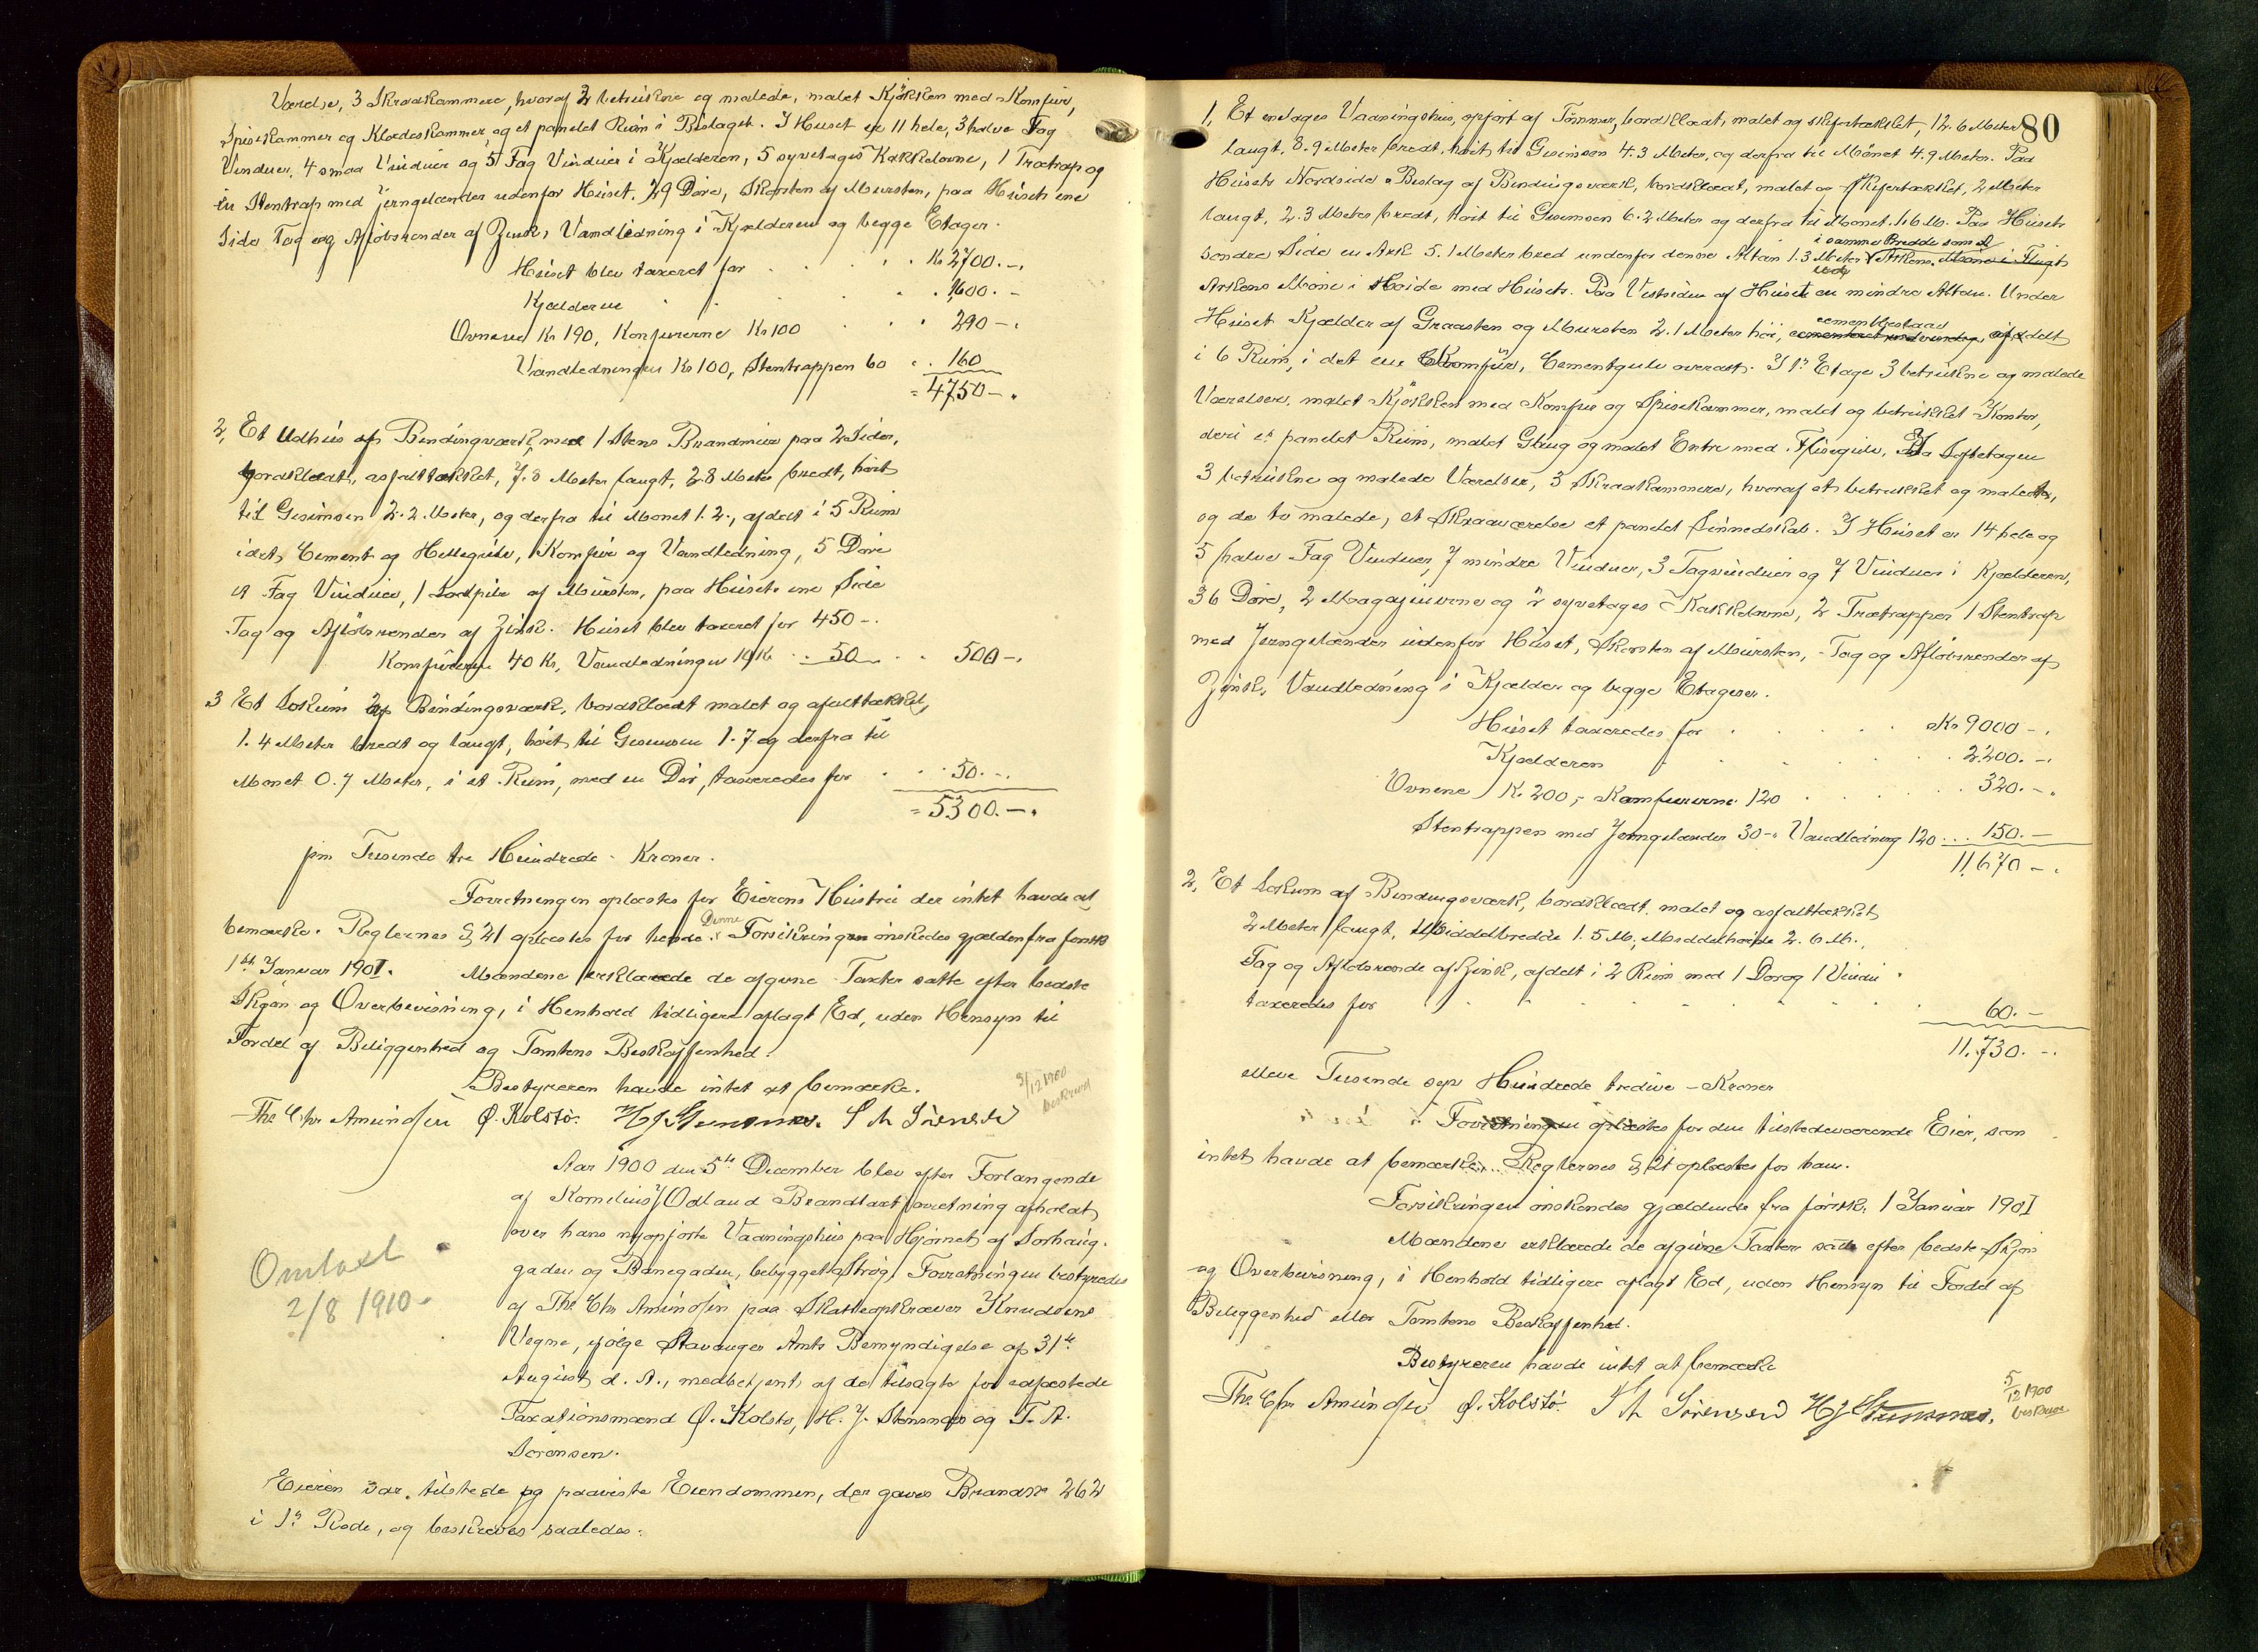 Værelse, 3 Skraakammere, hvoraf 2 betrukne og malede, malet Kjøkken med Komfur,
Spisekammer og Klædeskammer, og et panelet Rum i Bislaget. I Huset er 11 hele, 3 halve Fag
Vinduer, 4 smaa Vinduer og 5 Fag Vinduer i Kjælderen, 5 syvetages Kakkelovne, 1 Trætrap og
en Stentrap med Jerngelænder udenfor Huset. 29 Døre, Skorsten af Mursten, paa Husets ene
Side Tag og Afløbsrender af Zink, Vandledning i Kjælderen og begge Etager.
Huset blev taxeret for Kr 2700.-.
Kjælderen 1600.-
Ovnene Kr 190, Komfurerne Kr 100 290-.
Vandledningen Kr 100, Stentrappen 60 160
= 4750-.
2, Et Udhus af Bindingsværk, med 1 Stens Brandmur paa 2 Sider,
bordklædt, asfalttækket, 7.8 Meter langt, 2.8 Meter bredt, høit
til Gesimsen 2.2 Meter, og derfra til Mønet 1.2, afdelt i 5 Rum
i det Cement og Hellegulv, Komfur og Vandledning, 5 Døre
Fag Vinduer, 1 Sodpibe af Mursten, paa Husets ene Side
Tag og Afløbsrender af Zink. Huset blev taxeret for 450-.
Komfuren 40 Kr, Vandledningen 10 Kr 50 500-.
3 Et Lokum af Bindingsværk, bordklædt malet og asfalttækket,
1.4 Meter bredt og langt, høit til Gesimsen 1.7 og derfra til
Mønet 0.7 Meter, i et Rum, med en Dør, taxeredes for 50.-.
= 5300.-.
fem Tusende tre Hundrede Kroner.
Forretningen oplæstes for Eierens Hustru der intet havde at
bemærke. Reglernes § 21 oplæstes for hende. Denne Forsikringen ønskedes gjælden fra førstk
1ste Januar 1901. Mændene erklærede de afgivne Taxter satte efter bedste
Skjøn og Overbevisning, i Henhold tidligere aflagt Ed, uden Hensyn til
Fordel af Beliggenhed og Tomtens Beskaffenhed.
Bestyreren havde intet at bemærke.
5/12 1900
beskrevet
Ths. Chr. Amundsen Ø. Kolstø. H J Stensnæs. T A Sørensen
Aar 1900 den 5te December blev efter Forlangende
af Kornelius J Odland Brandtaxtforretning afholdt
over hans nyopførte Vaaningshus paa Hjørnet af Sørhaug-
gaden og Banegaden, bebygget Strøg. Forretningen bestyredes
af Ths. Chr. Amundsen paa Skatteopkræver Knudsens
Vegne, ifølge Stavanger Amts Bemyndigelse af 31te
August d. A., medbetjent af de tilsagte før edfæstede
Taxationsmænd Ø. Kolstø, H. J. Stensnæs og T. A.
Sørensen.
Omtaxt
2/8 1910.
Eieren var tilstede og paaviste Eiendommen, der gaves Brandnr 262
i 1te Rode, og beskreves saaledes:
80
1, Et enetages Vaaningshus, opført af Tømmer, bordklædt, malet og skifertækket, 12.6 Meter
langt, 8.9 Meter bredt, høit til Gesimsen 4.3 Meter, og derfra til Mønet 4.9 Meter. Paa
Husets Nordside Bislag af Bindingsværk, bordklædt, malet og Skifertækket, 2 Meter
langt, 2.3 Meter bredt, høit til Gesimsen 6.2 Meter og derfra til Mønet 1.6 M. Paa Husets
søndre Side en Ark 5.1 Meter bred undenfor denne Altan 1.3 Meter i samme Bredde som Arkens, Møne i Flugt
Arkens Møne i Høide med Husets. Paa Vestsiden af Huset en mindre Altan. Under
Huset Kjælder af Graasten og Mursten 2.1 Meter høi, afdelt
i 6 Rum, i det ene Komfur, Cementgulv overalt. I 1ste Etage 3 betrukne og malede
Værelser, malet Kjøkken med Komfur og Spisekammer, malet og betrukket Kontor,
deri et panelet Rum, malet Gang og malet Entre med Flisegulv. Paa Loftetagen
3 betrukne og malede Værelser, 3 Skraakammere, hvoraf et betrukket og malet,
og de to malede, et Skraaværelse et panelet Linnedskab. I Huset er 14 hele og
5 halve Fag Vinduer, 7 mindre Vinduer, 3 Tagvinduer og 7 Vinduer i Kjælderen,
36 Døre, 2 Magasinovne og syvetages Kakkelovne, 2 Trætrapper 1 Stentrap
med Jerngelænder udenfor Huset, Skorsten af Mursten, Tag og Afløbsrender af
Zink, Vandledning i Kjælder og begge Etager.
Huset taxeredes for Kr 9000-.
Kjælderen 2200.-.
Ovnene Kr. 200, Komfurerne 120 320.-.
Stentrappen med Jerngelænder 30-. Vandledning 120 150.-
11,670-.
2, Et Lokum af Bindingsværk, bordklædt, malet og asfalttækket
2 Meter langt, Middelbredde 1.5 M., Middelhøide 2.6 M.,
Tag og Afløbsrende af Zink, afdelt i 2 Rum med 1 Dør og 1 Vindu
taxeredes for 60.-
11.730.-.
elleve Tusende syv Hundrede tredive - Kroner
Forretningen oplæstes for den tilstedeværende Eier, som
intet havde at bemærke. Reglernes § 21 oplæstes for ham.
Forsikringen ønskendes gjældende fra førstk. 1 Januar 1901
Mændene erklærede de afgivne Taxter satte efter bedste Skjøn
og Overbevisning, i Henhold tidligere aflagt Ed, uden Hensyn til Fordel af
Beliggenhed eller Tomtens Beskaffenhed.
Bestyreren havde intet at bemærke
Ths. Chr. Amundsen Ø. Kolstø. T A Sørensen H J Stensnæs.
5/12 1900
beskrevet